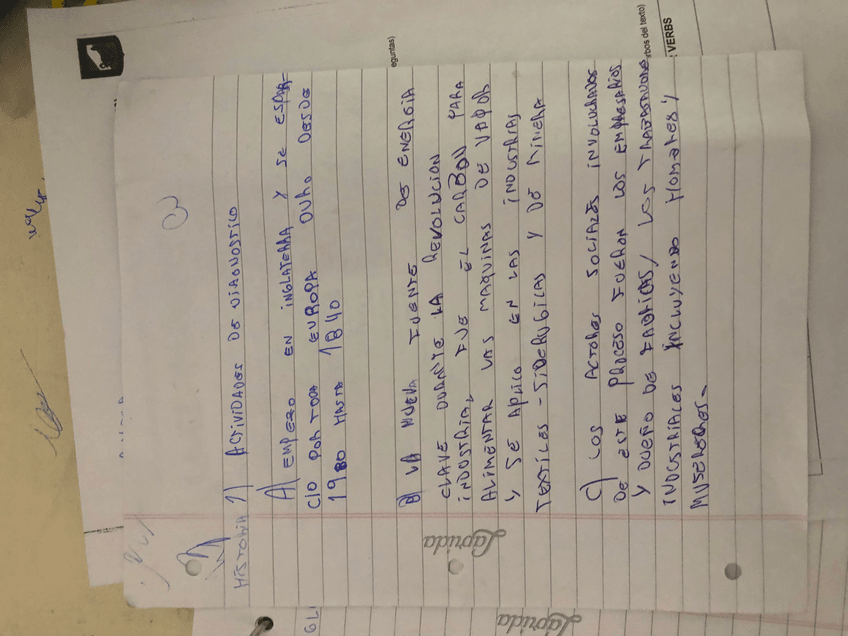 HISTORIA 1) ACTIVIDADES DE DIAGNOSTICO
A) EMPEZO EN INGLATERRA Y SE ESPAR-
CIO POR TODA EUROPA DURO DESDE
1980 HASTA 1840
B) LA NUEVA FUENTE DE ENERGIA
CLAVE DURANTE LA REVOLUCION
INDUSTRIAL, FUE EL CARBON PARA
ALIMENTAR LAS MAQUINAS DE VAPOR
Y SE APLICO EN LAS INDUSTRIAS
TEXTILES - SIDERUGICAS Y DE MINERA
C) LOS ACTORES SOCIALES INVOLUCRADOS
DE ESTE PROCESO FUERON LOS EMPRESARIOS
Y DUEÑO DE FABRICAS, LOS TRABAJADORES
INDUSTRIALES INCLUYENDO HOMBRES Y
MUJERES.-
Laprida
Laprida
eguntas)
rbos del texto)
VERBS